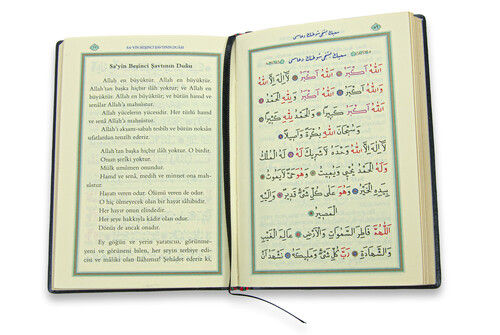 SA'YİN BEŞİNCİ ŞAVTININ DUÂSI
Sa'yin Beşinci Şavtının Duâsı
Allah en büyüktür. Allah en büyüktür.
Allah'tan başka hiçbir ilâh yoktur; ve Allah en
büyüktür. Allah en büyüktür; ve bütün hamd ve
senâlar Allah'a mahsustur.
Allah yücelerin yücesidir. Her türlü hamd
ve senâ Allah'a mahsustur.
Allah'ı akşam-sabah tesbih ve bütün noksan
sıfatlardan tenzih ederiz.
Allah'tan başka hiçbir ilâh yoktur. O birdir.
Onun şerîki yoktur.
Mülk umûmen onundur.
Hamd ve senâ, medih ve minnet ona mah-
sustur.
Hayatı veren odur. Ölümü veren de odur.
O hiç ölmeyecek olan bir hayat sâhibidir.
Her hayır onun elindedir.
Her şeye hakkıyla kâdir olan odur.
Dönüş de ancak onadır.
Ey göğün ve yerin yaratıcısı, görünme-
yeni ve görüneni bilen, her şeyin terbiye edi-
cisi ve mâliki olan İlâhımız! Şehâdet ederiz ki,
اَللّٰهُ اَكْبَرُ اَللّٰهُ اَكْبَرُ لَا اِلٰهَ اِلَّا اللّٰهُ
وَاللّٰهُ اَكْبَرُ اَللّٰهُ اَكْبَرُ وَلِلّٰهِ الْحَمْدُ
اَللّٰهُ اَكْبَرُ كَبِيرًا وَالْحَمْدُ لِلّٰهِ كَثِيرًا
وَسُبْحَانَ اللّٰهِ بُكْرَةً وَاَصِيلًا
لَا اِلٰهَ اِلَّا اللّٰهُ وَحْدَهُ لَا شَرِيكَ لَهُ لَهُ الْمُلْكُ
وَلَهُ الْحَمْدُ يُحْيِى وَيُمِيتُ وَهُوَ حَىٌّ لَا يَمُوتُ
بِيَدِهِ الْخَيْرُ وَهُوَ عَلٰى كُلِّ شَىْءٍ قَدِيرٌ وَاِلَيْهِ
الْمَصِيرُ
اَللّٰهُمَّ فَاطِرَ السَّمٰوَاتِ وَالْاَرْضِ عَالِمَ الْغَيْبِ
وَالشَّهَادَةِ رَبَّ كُلِّ شَىْءٍ وَمَلِيكَهُ نَشْهَدُ اَنْ